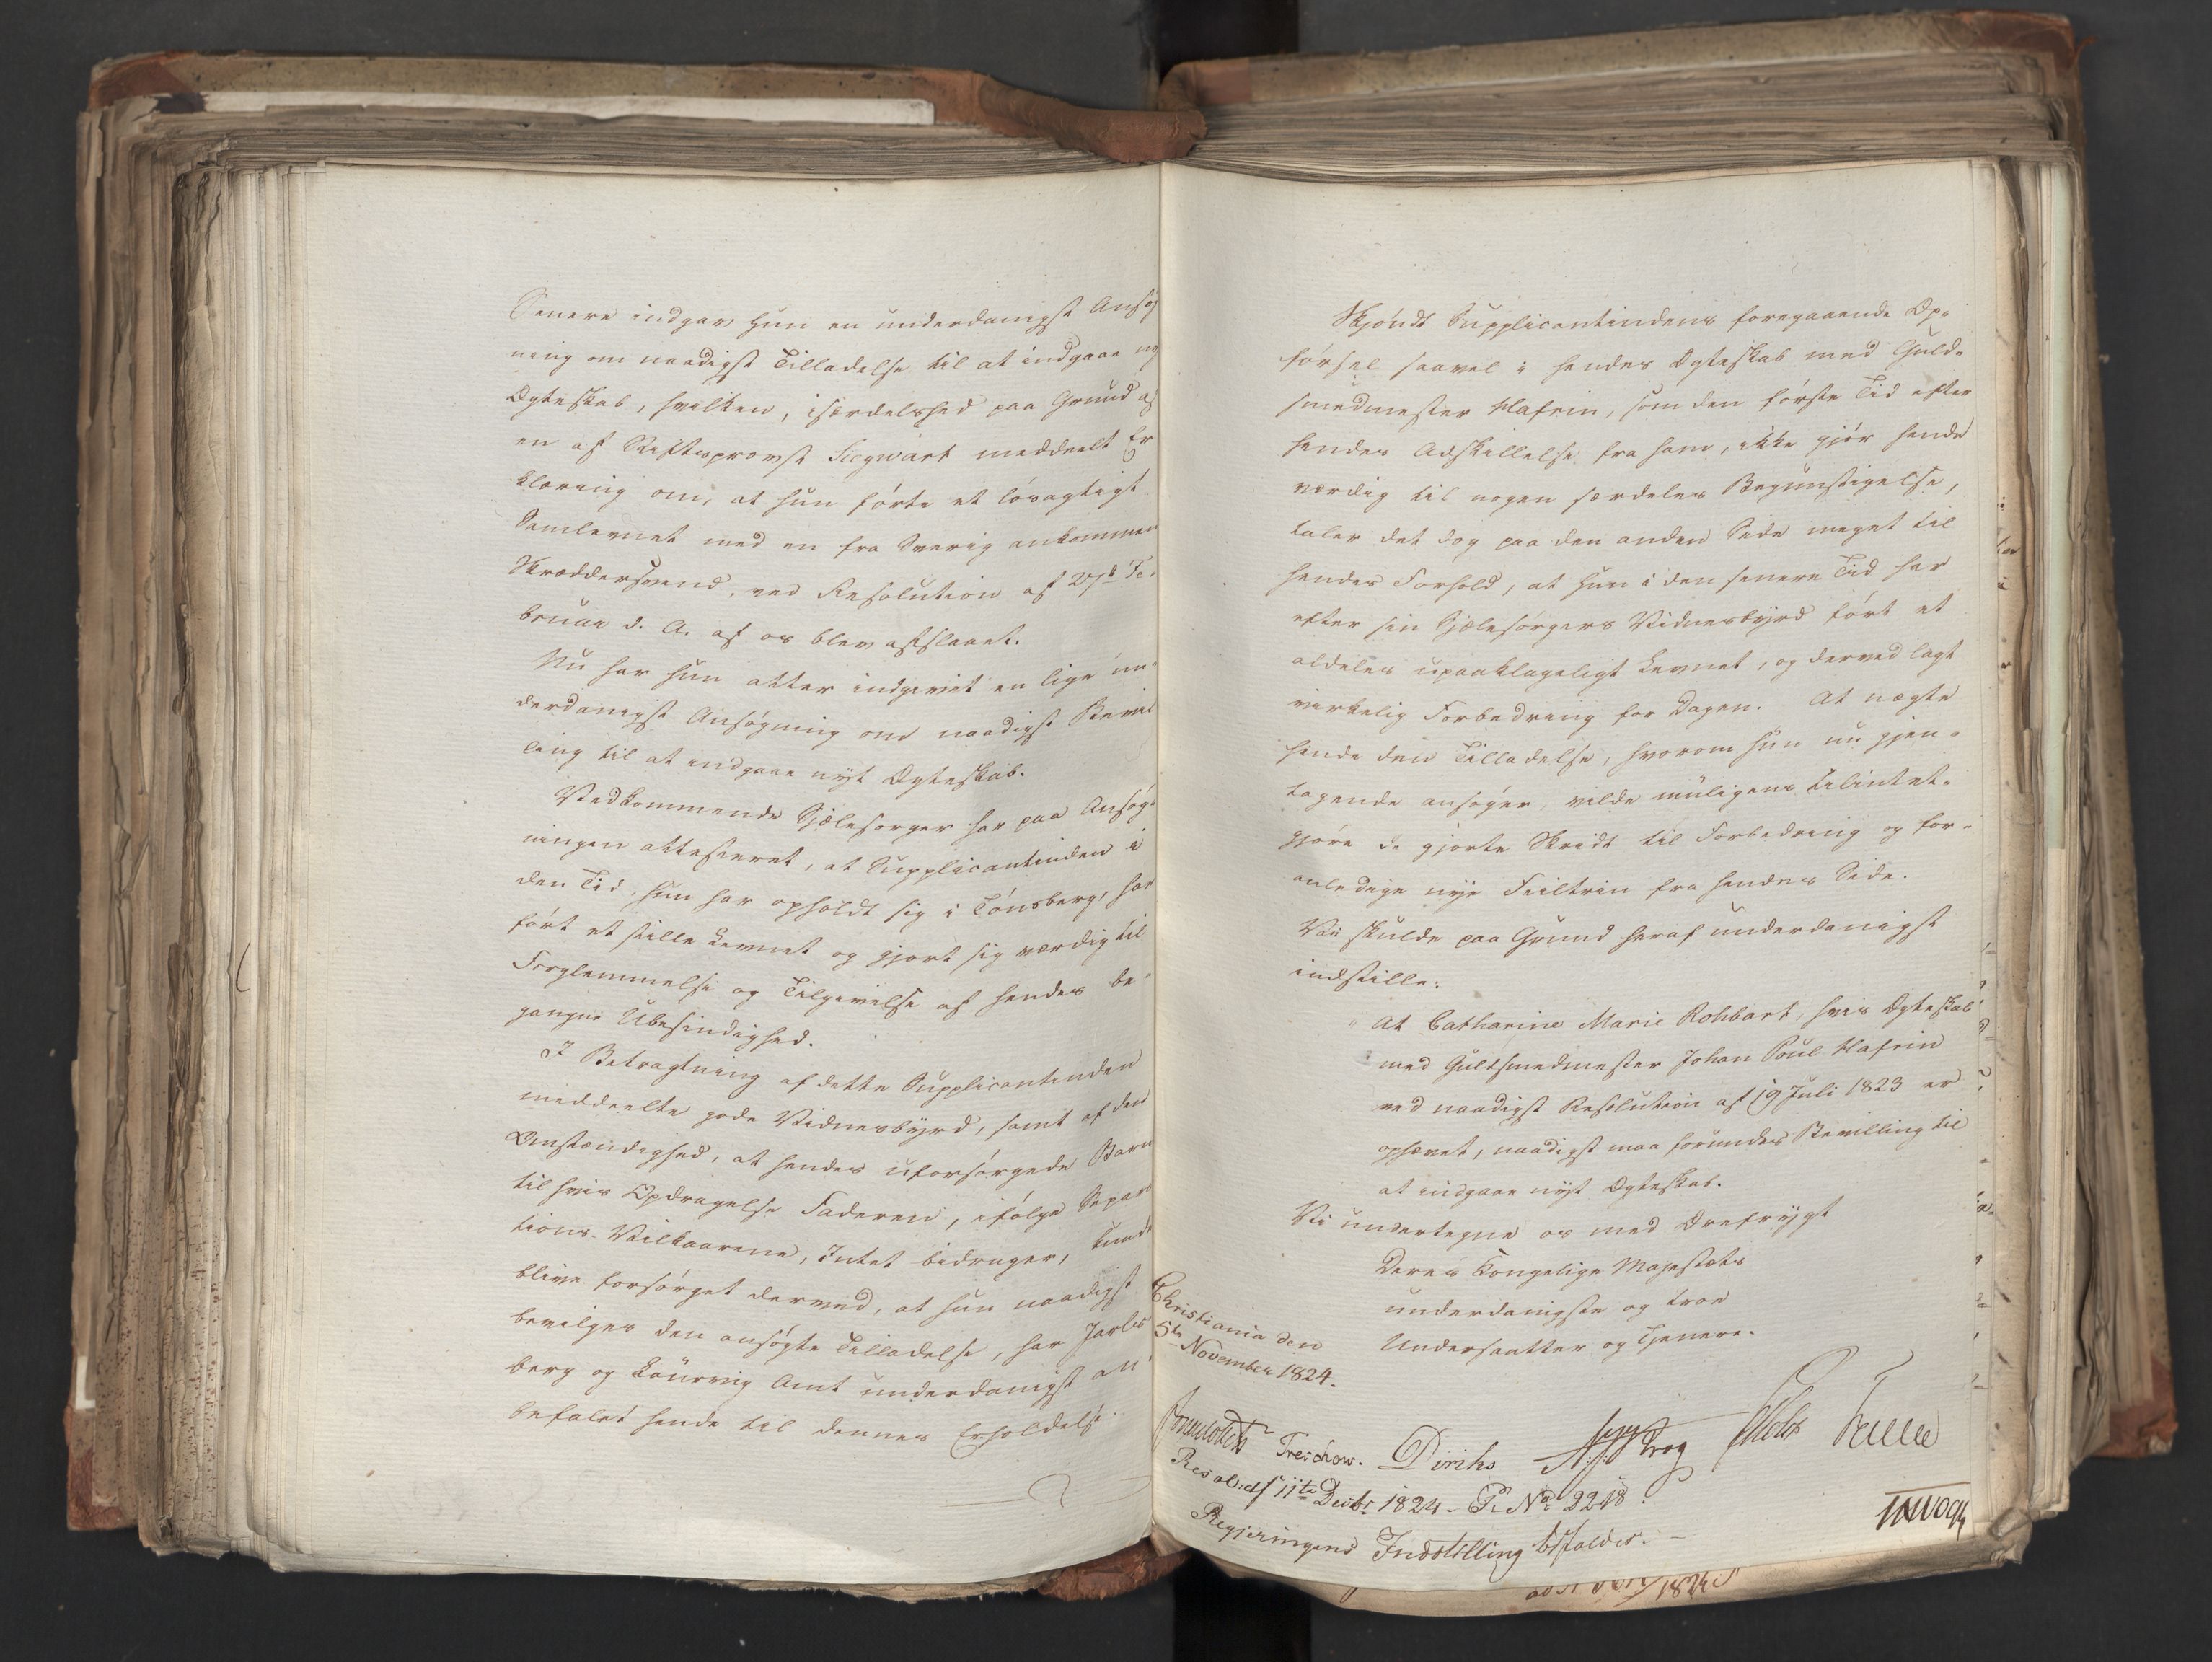 Senere indgav hun en underdanigst Ansøg
ning om naadigst Tilladelse til at indgaae ny
Ægteskab, hvilken, isærdelshed paa Grund af
en af Stiftsprovst Siegwart meddeelt Er
klæring om, at hun førte et løsagtigt
Samlevnet med en fra Sverig ankommen
Skræddersvend, ved Resolution af 27de Fe-
bruar d. A. af os blev afslaaet.
Nu har hun atter indgivet en lige un-
derdanigst Ansøgning om naadigst Bevil
ling til at indgaae nyt Ægteskab.
Vedkommende Sjælesørger har paa Ansøg-
ningen attesteret, at Supplicantinden i
den Tid, hun har opholdt sig i Tønsberg, har
ført et stille Levnet og gjort sig værdig til
Forglemmelse og Tilgivelse af hendes be-
gangne Ubesindighed.
I Betragtning af dette Supplicantinden
meddeelte gode Vidnesbyrd, samt af den
Omstændighed, at hendes uforsørgede Barn
til hvis Opdragelse Faderen, ifølge Separa
tions-Vilkaarene, Intet bidrager, kunde
blive forsørget derved, at hun naadigst
bevilges den ansøgte Tilladelse, har Jarls
berg og Laurvig Amt underdanigst an
befalet hende til dennes Erholdelse.
Skjøndt Supplicantindens foregaaende Op-
førsel saavel i hendes Ægteskab med Guld-
smedmester Hafrin, som den første Tid efter
hendes Adskillelse fra ham, ikke gjør hende
værdig til nogen særdeles Begunstigelse,
taler det dog paa den anden Side meget til
hendes Forhold, at hun i den senere Tid har
efter sin Sjælesørgers Vidnesbyrd ført et
aldeles upaaklageligt Levnet, og derved lagt
virkelig Forbedring for Dagen. At nægte
hende den Tilladelse, hvorom hun nu gjen-
tagende ansøger, vilde muligens tilintet-
gjøre de gjorte Skridt til Forbedring og for-
anledige nye Feiltrin fra hendes Side.
Vi skulde paa Grund heraf underdanigst
indstille:
At Catharine Marie Rohbart, hvis Ægteskab
med Guldsmedmester Johan Poul Hafrin
ved naadigst Resolution af 19 Juli 1823 er
ophævet, naadigst maa forundes Bevilling til
at indgaae nyt Ægteskab.
Vi undertegne os med Ærefrygt
Deres Kongelige Majestæts
underdanigste og troe
Undersaatter og Tjenere.
Christiania den
5te November 1824.
Treschow. Diriks Krog Holst
Resol: af 11te Decbr 1824 - P. No 2218.
Regjeringens Indstilling bifaldes. -